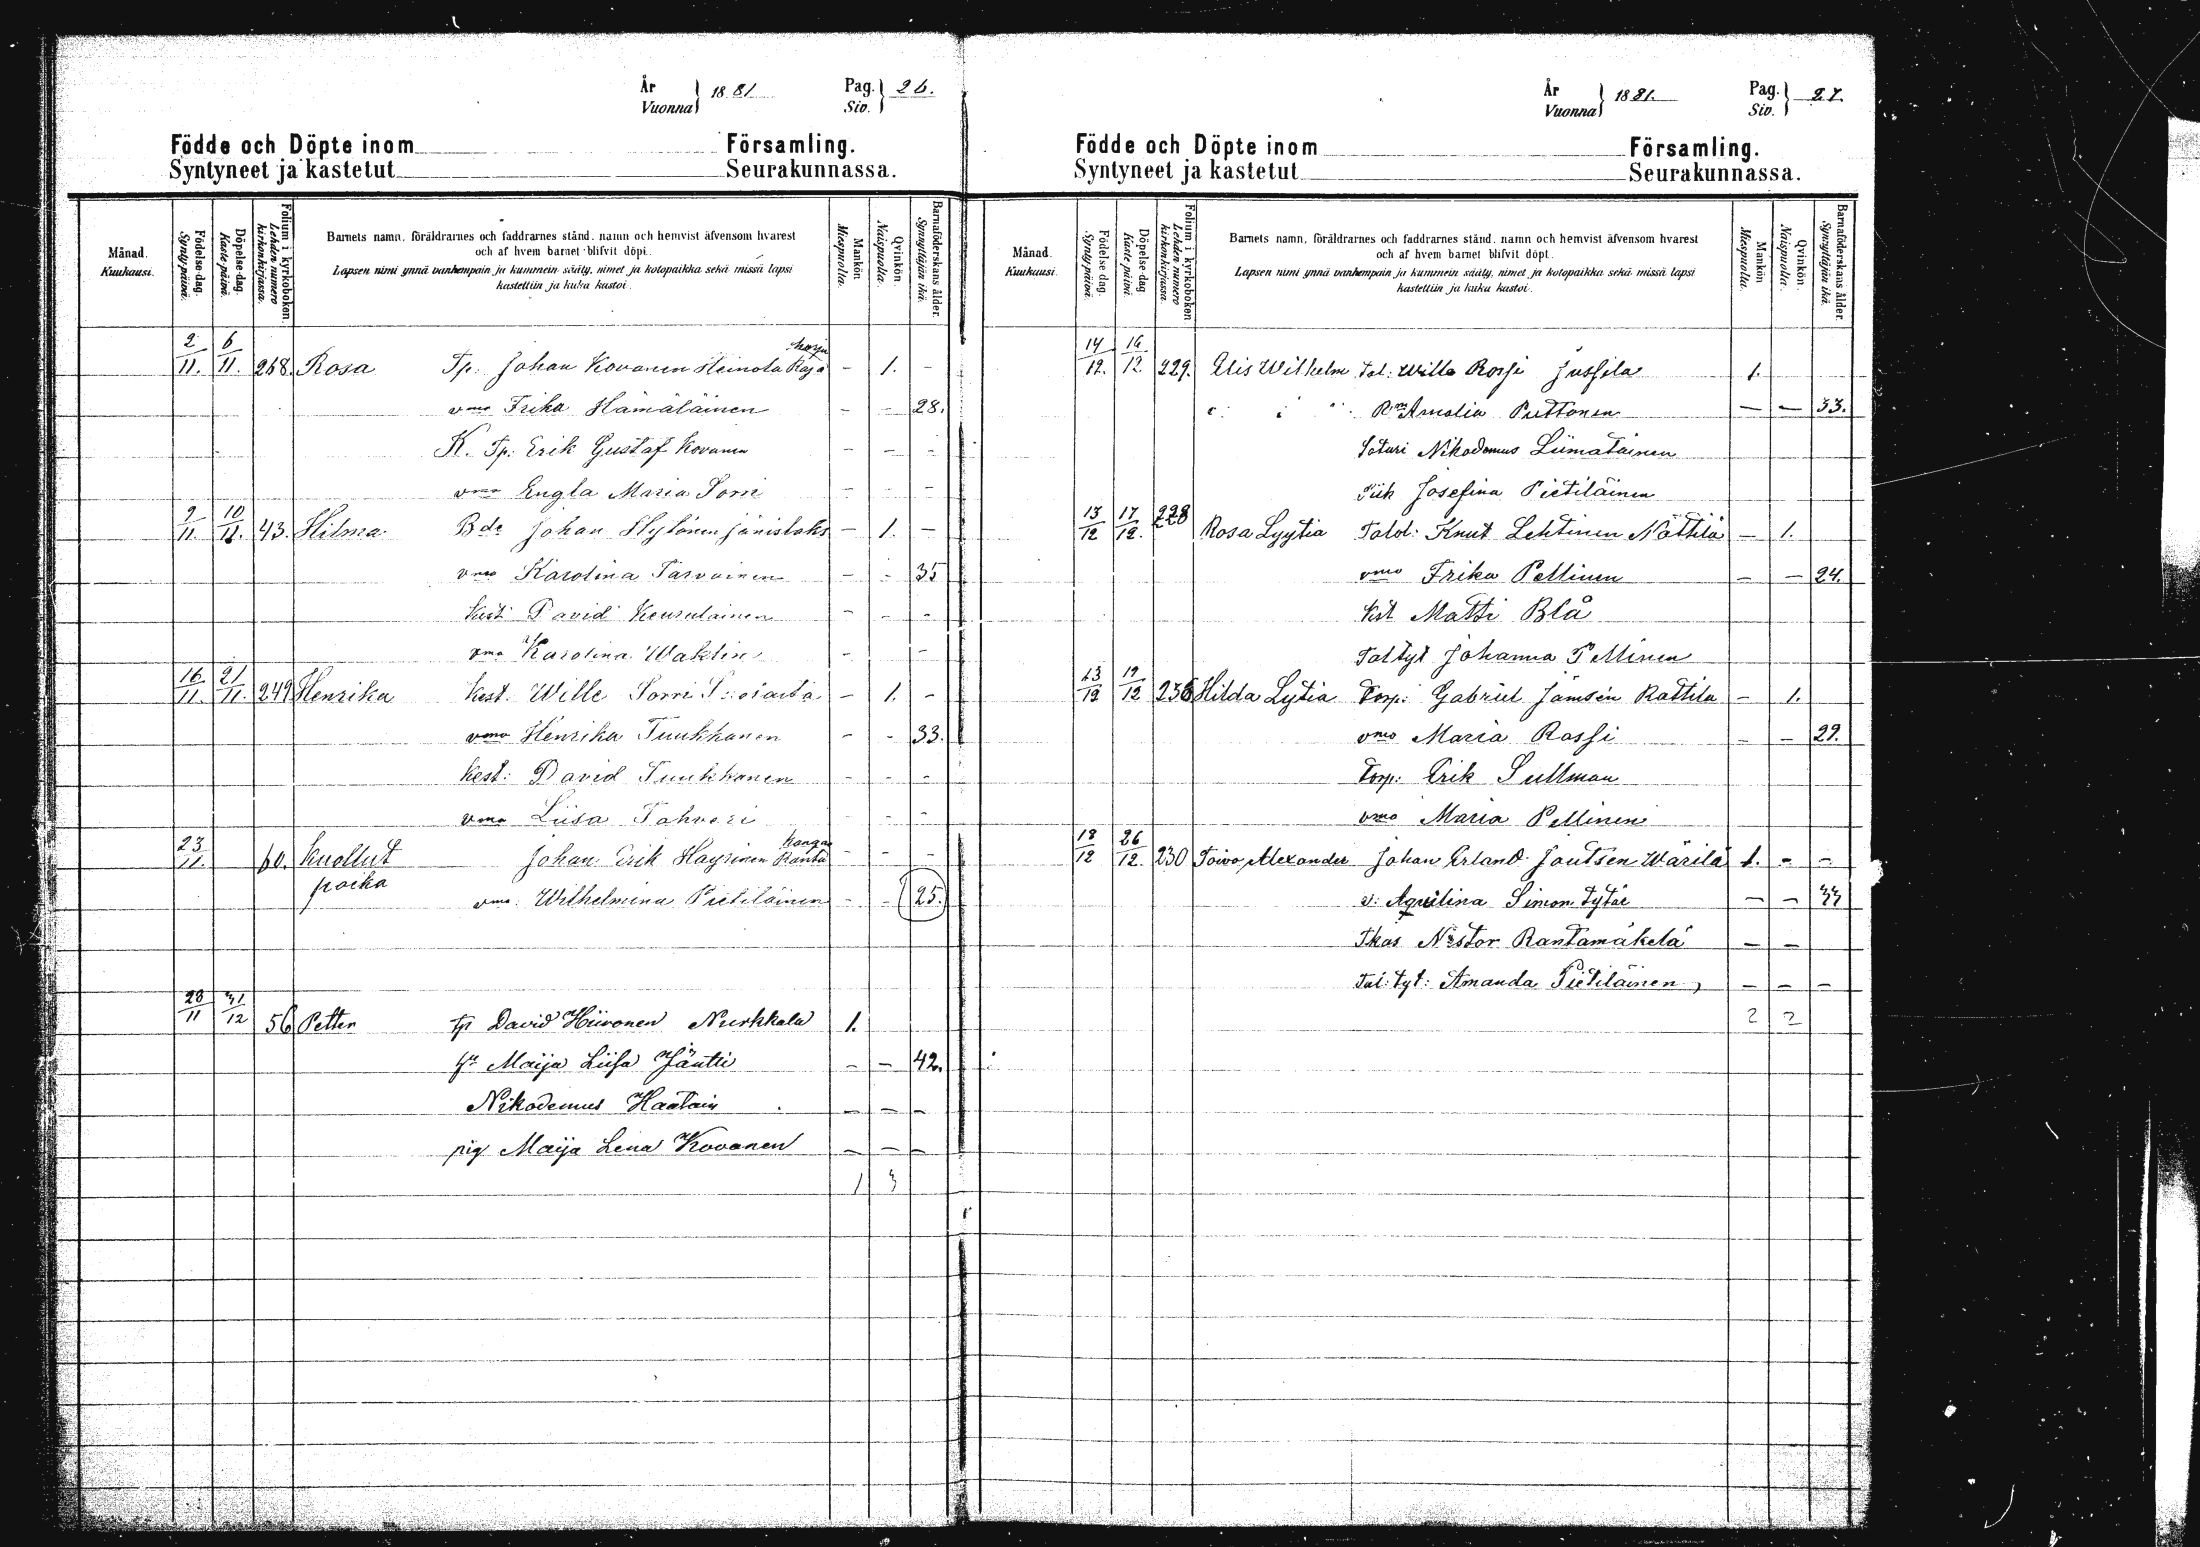 År Vuonna 1881. Pag. Siv. 26.
Födde och Döpte inom Församling.
Syntyneet ja kastetut Seurakunnassa.
Månad. Kuukausi.
Födelse dag. Synty-päivä.
Döpelse-dag. Kaste-päivä.
Folium i kyrkoboken. Lehden numero kirkonkirjassa.
Barnets namn, föräldrarnes och faddrarnes stånd, namn och hemvist äfvensom hvarest
och af hvem barnet blifvit döpt.
Lapsen nimi ynnä vanhempain ja kummein sääty, nimet ja kotopaikka sekä missä lapsi
kastettiin ja kuka kastoi.
Mankön Miespuolia.
Qvinkön. Naispuolia.
Barnaföderskans ålder. Synnyttäjän ikä.
2/11. 6/11. 268. Rosa Tp. Johan Kovanen Heinola Raja harju - 1. -
vmo Frika Hämäläinen - - 28.
K. Tp. Erik Gustaf Kovanen - - -
vmo Engla Maria Sorri - - -
9/11. 10/11. 43. Hilma Bde Johan Hytönen Jänislaks - 1. -
vmo Karolina Tarvainen - - 35
kest David Keurulainen - - -
vmo Karolina Waktin - -
16/11. 21/11. 249 Henrika kest. Wille Sorri - 1. -
vmo Henrika Tuukkanen - - 33.
kest: David Tuukkanen - - -
vmo Liisa Tahvori - -
23/11. 60. kuollut Johan Erik Häyrinen Kangas Ranta - - -
poika vmo. Wilhelmina Pietiläinen - - 25.
28/11 31/12 56 Petter tp David Hiironen Nurkkala 1.
Maija Liisa Jäntti - - 42.
Nikodemus - - -
pig Maija Lena Kovanen - - -
1 3
År Vuonna 1881. Pag. Siv. 27.
Födde och Döpte inom Församling.
Syntyneet ja kastetut Seurakunnassa.
Månad. Kuukausi.
Födelse dag. Synty-päivä.
Döpelse-dag Kaste-päivä.
Folium i kyrkoboken Lehden numero kirkonkirjassa.
Barnets namn, föräldrarnes och faddrarnes stånd, namn och hemvist äfvensom hvarest
och af hvem barnet blifvit döpt.
Lapsen nimi ynnä vanhempain ja kummein sääty, nimet ja kotopaikka sekä missä lapsi
kastettiin ja kuka kastoi.
Mankön Miespuolia.
Qvinkön. Naispuolia.
Barnaföderskans ålder. Synnyttäjän ikä.
14/12. 16/12 229. Elis Wilhelm Tal: Wille Rossi Jussila 1.
Rm Amalia Puttonen - - 33.
Suturi Nikodemus Liimatainen
Piik Josefina Pietiläinen
13/12 17/12. 228 Rosa Lyytia Talol: Knut Lehtinen Nättilä - 1.
vmo Frika Pellinen - - 24.
kst Matti Blå
Tal tyt Johanna Pellinen
13/12 19/12 236 Hilda Lytia Torp: Gabriel Jämsén Rattila - 1.
vmo Maria Rossi - - 29.
Torp: Erik Sullman
vmo Maria Pellinen
18/12 26/12. 230 Toivo Alexander Johan Erland Joutsen Wärilä 1. - -
v: Aqvilina Simon tytär - - 33
Tkas Nestor Rantamäkelä - -
Tal: tyt: Amanda Pietiläinen, - - -
2 2